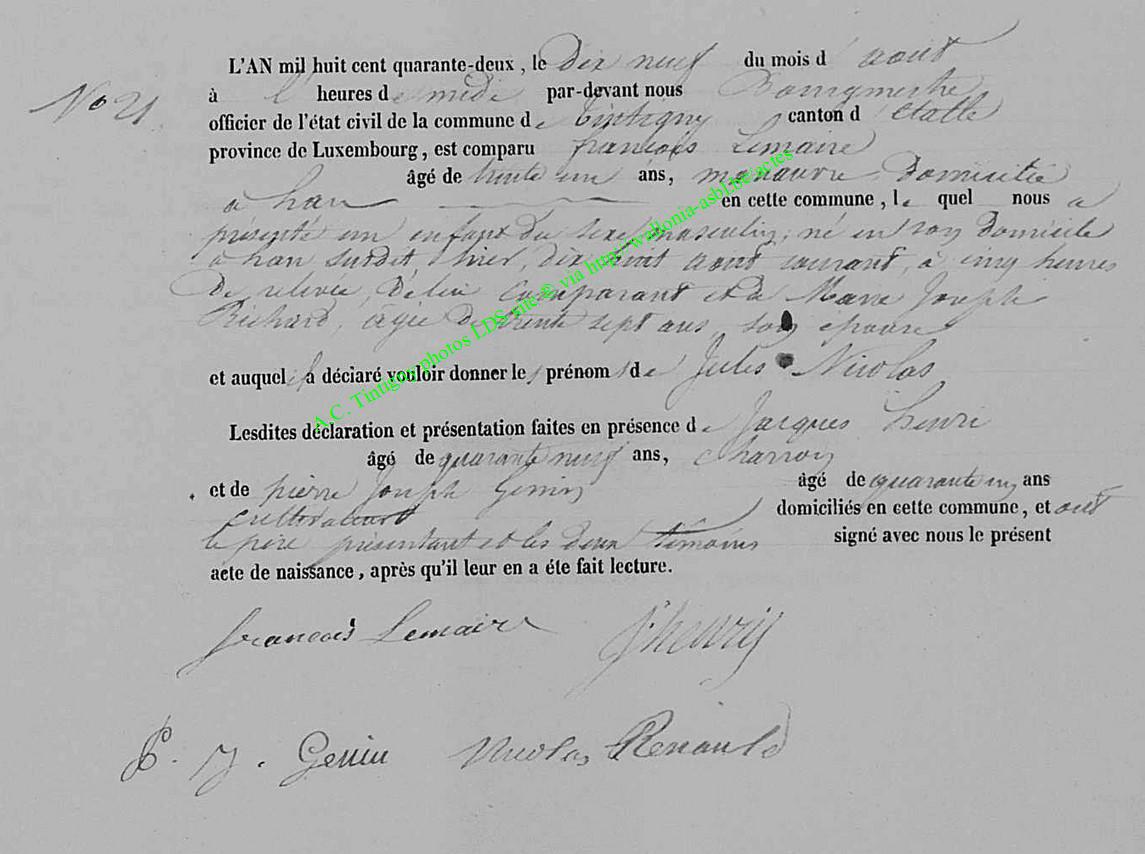 L'AN mil huit cent quarante-deux, le Dix neuf du mois d'aout
No 21.
à l' heures de midi par-devant nous Bourgmestre
officier de l'état civil de la commune de Tintigny canton d'Etalle
province de Luxembourg, est comparu françois Lemaire
âgé de trente un ans, manœuvre Domicilié
à han en cette commune, lequel nous a
présenté un enfant du sexe masculin, né en son Domicile
à han susdit hier, dix huit aout courant, à cinq heures
De relevée, De lui comparant et de Marie Joseph
Richard, agée De trente sept ans, son épouse
et auquel il a déclaré vouloir donner les prénoms de Jules Nicolas
Lesdites déclaration et présentation faites en présence de Jacques henri
âgé de quarante neuf ans, charron
et de pierre Joseph Genin âgé de quarante un ans
cultivateur domiciliés en cette commune, et ont
le père présentant et les deux témoins signé avec nous le présent
acte de naissance, après qu'il leur en a éte fait lecture.
francois Lemaire J henry
P. J. Genin Nicolas Renauld
A.C. Tintigny photos LDS site © via http://wallonia-asbl.be/actes